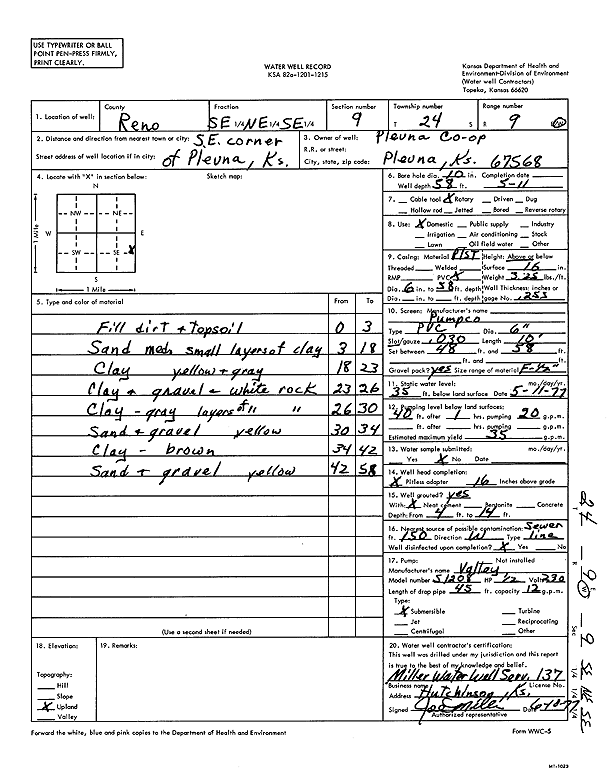 USE TYPEWRITER OR BALL
POINT PEN-PRESS FIRMLY,
PRINT CLEARLY.
WATER WELL RECORD
KSA 82a-1201-1215
Kansas Department of Health and
Environment-Division of Environment
(Water well Contractors)
Topeka, Kansas 66620
1. Location of well: County Reno Fraction SE 1/4 NE 1/4 SE 1/4 Section number 9 Township number T 24 S Range number R 9 W
2. Distance and direction from nearest town or city: S.E. corner
Street address of well location if in city: of Plevna, Ks.
3. Owner of well: Plevna Co-op
R.R. or street:
City, state, zip code: Plevna, Ks. 67568
4. Locate with "X" in section below: Sketch map:
N
NW NE
W E
SW SE X
S
1 Mile
1 Mile
5. Type and color of material From To
Fill dirt + topsoil 0 3
Sand meds small layers of clay 3 18
Clay yellow + gray 18 23
Clay + gravel + white rock 23 26
Clay - gray layers of " " 26 30
Sand + gravel yellow 30 34
Clay - brown 34 42
Sand + gravel yellow 42 58
(Use a second sheet if needed)
6. Bore hole dia. 10 in. Completion date
Well depth 58 ft. 5-11
7. Cable tool X Rotary Driven Dug
Hollow rod Jetted Bored Reverse rotary
8. Use: X Domestic Public supply Industry
Irrigation Air conditioning Stock
Lawn Oil field water Other
9. Casing: Material PlST Height: Above or below
Threaded Welded Surface 16 in.
RMP PVC X Weight 3.25 lbs./ft.
Dia. 6 in. to 58 ft. depth Wall Thickness: inches or
Dia. in. to ft. depth gage No. .255
10. Screen: Manufacturer's name
Pumpco
Type PVC Dia. 6"
Slot/gauge .030 Length 10'
Set between 48 ft. and 58 ft.
ft. and ft.
Gravel pack? yes Size range of material F-1/2"
11. Static water level: mo./day/yr.
35 ft. below land surface Date 5-11-77
12. Pumping level below land surfaces:
40 ft. after 1 hrs. pumping 20 g.p.m.
ft. after hrs. pumping g.p.m.
Estimated maximum yield 35 g.p.m.
13. Water sample submitted: mo./day/yr.
Yes X No Date
14. Well head completion:
X Pitless adapter 16 Inches above grade
15. Well grouted? yes
With: X Neat cement Bentonite Concrete
Depth: From 4 ft. to 14 ft.
16. Nearest source of possible contamination: Sewer
ft. 150 Direction W Type line
Well disinfected upon completion? X Yes No
17. Pump: Not installed
Manufacturer's name Valley
Model number S1208 HP 1/2 Volts 230
Length of drop pipe 45 ft. capacity 12 g.p.m.
Type:
X Submersible Turbine
Jet Reciprocating
Centrifugal Other
18. Elevation:
Topography:
Hill
Slope
X Upland
Valley
19. Remarks:
20. Water well contractor's certification:
This well was drilled under my jurisdiction and this report
is true to the best of my knowledge and belief.
Miller Water Well Serv. 137
Business name License No.
Address Hutchinson, Ks.
Signed Joe Miller Date
Authorized representative
Forward the white, blue and pink copies to the Department of Health and Environment
Form WWC-5
24 - 9 W - 9 SE NE SE
T R Sec 1/4 1/4 1/4